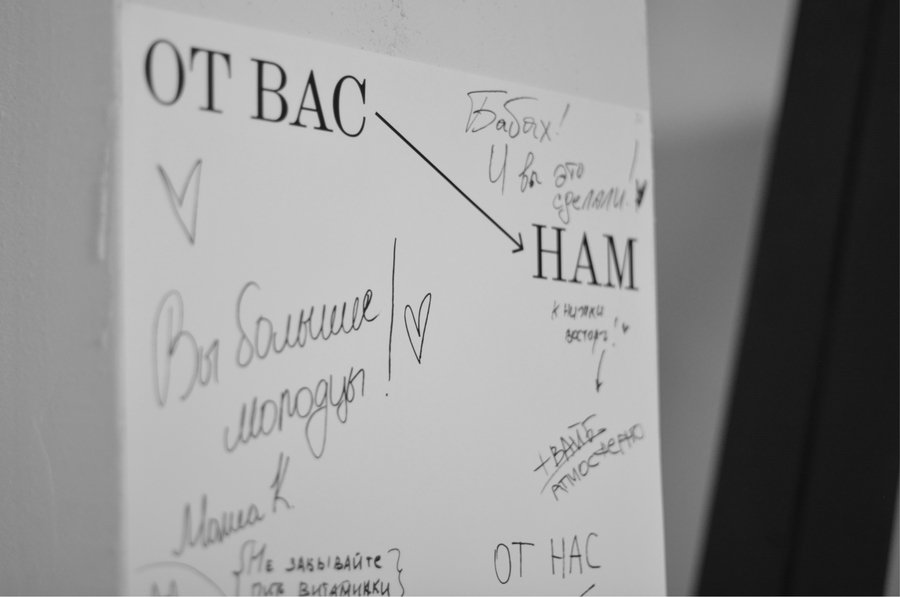 ОТ ВАС
Бабах!
И вы это
сделали!
НАМ
Вы большие
молодцы!
книжки
восторг!
+ВАЙБ
АТМОСФЕРНО
Маша К
{Не забывайте
пить витаминки}
ОТ НАС